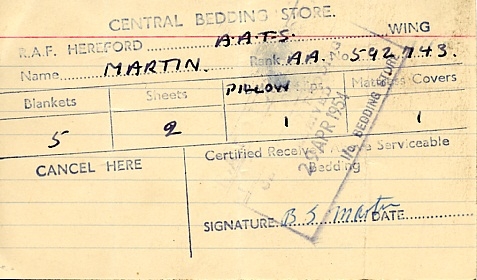 CENTRAL BEDDING STORE.
R.A.F. HEREFORD A.A.T.S. WING
Name MARTIN. Rank A.A. No 592743.
Blankets Sheets PILLOW Slips Mattress Covers
5 2 1 1
29 APR 1954
BEDDING STORE
CANCEL HERE Certified Received Above Serviceable
Bedding
SIGNATURE B S Martin DATE